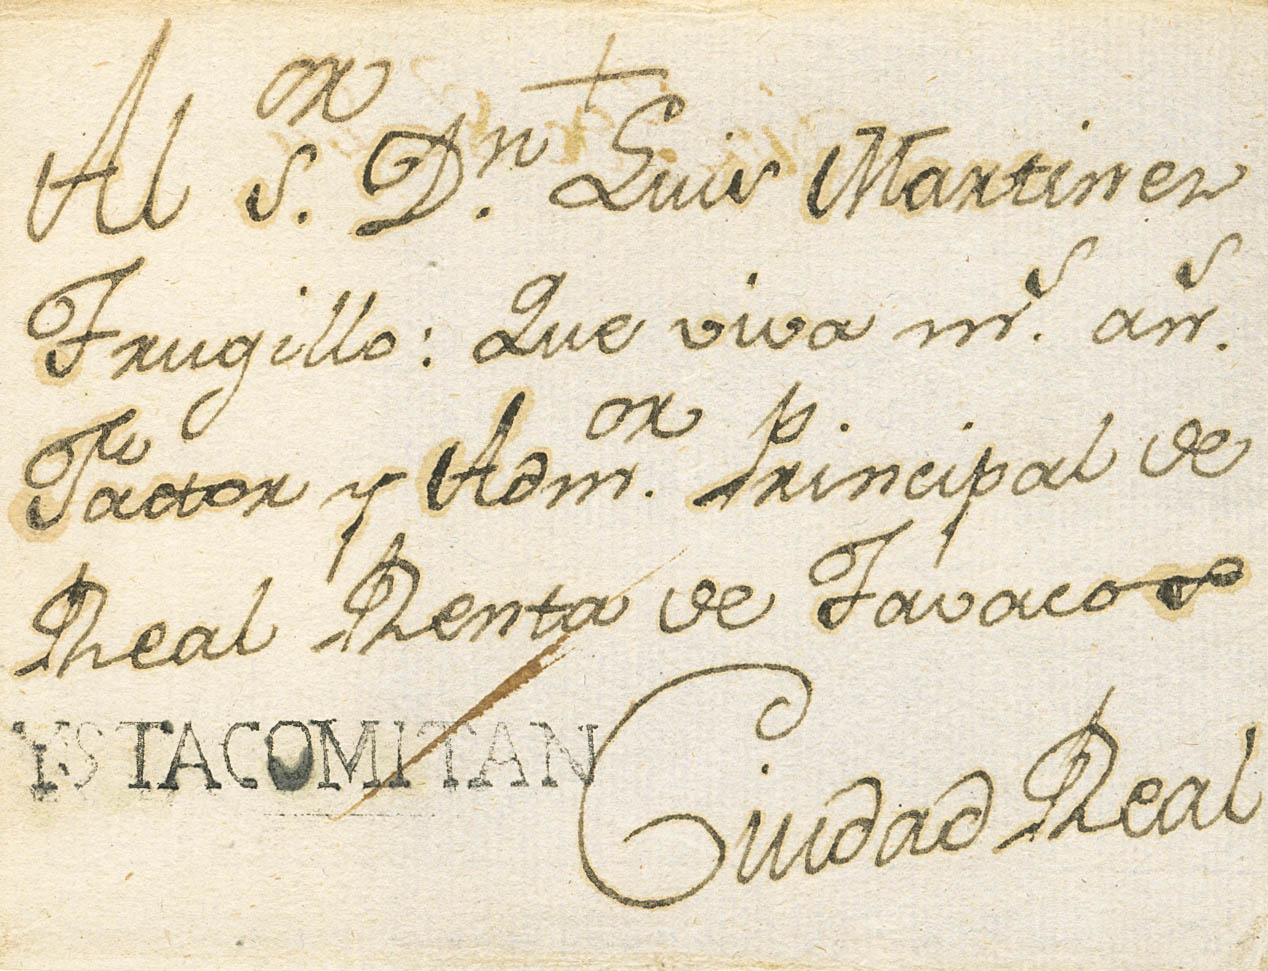 Al S.or Dn. Luis Martinez
Trugillo: Que viva ms. as.
Factor y Adm.or Principal de
Real Renta de Tavacos
YSTACOMITAN
Ciudad Real